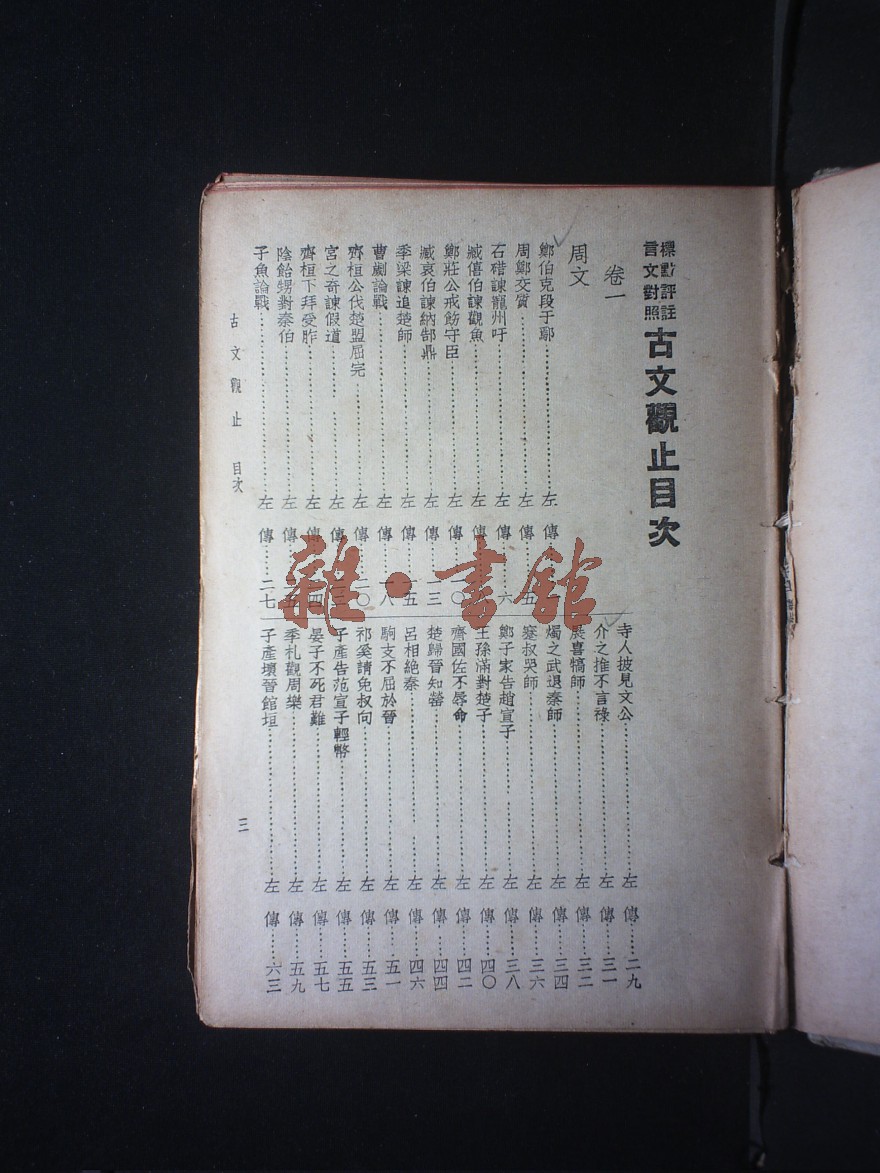 標點評註
言文對照
古文觀止目次
卷一
周文
鄭伯克段于鄢……左傳
周鄭交質……左傳……五
石碏諫寵州吁……左傳……六
臧僖伯諫觀魚……左傳
鄭莊公戒飭守臣……左傳……一〇
臧哀伯諫納郜鼎……左傳……一三
季梁諫追楚師……左傳……一五
曹劌論戰……左傳……一八
齊桓公伐楚盟屈完……左傳……二〇
宮之奇諫假道……左傳……二三
齊桓下拜受胙……左傳……二四
陰飴甥對秦伯……左傳……二五
子魚論戰……左傳……二七
寺人披見文公……左傳……二九
介之推不言祿……左傳……三一
展喜犒師……左傳……三二
燭之武退秦師……左傳……三四
蹇叔哭師……左傳……三六
鄭子家告趙宣子……左傳……三八
王孫滿對楚子……左傳……四〇
齊國佐不辱命……左傳……四二
楚歸晉知罃……左傳……四四
呂相絕秦……左傳……四六
駒支不屈於晉……左傳……五一
祁奚請免叔向……左傳……五三
子產告范宣子輕幣……左傳……五五
晏子不死君難……左傳……五七
季札觀周樂……左傳……五九
子產壞晉館垣……左傳……六三
古文觀止 目次
三
雜·書館